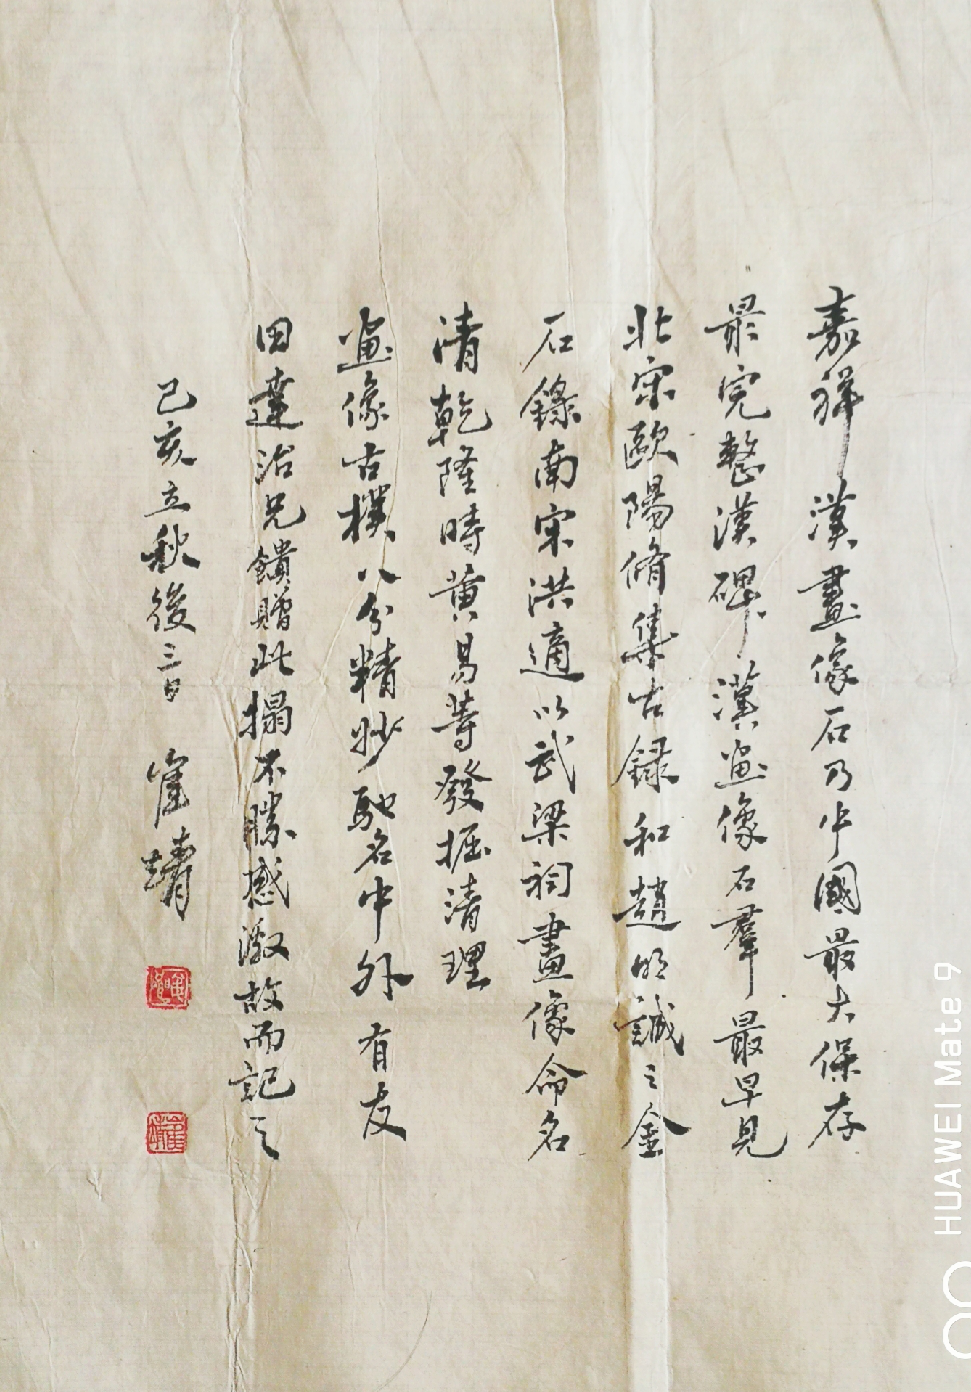 嘉祥漢畫像石乃中國最大保存
最完整漢碑漢画像石羣最早見
北宋歐陽脩集古録和趙明誠之金
石錄南宋洪適以武梁祠畫像命名
清乾隆時黄易等發掘清理
画像古樸八分精妙馳名中外有友
田達治兄饋贈此搨不勝感激故而記之
己亥立秋後三日崔靖
HUAWEI Mate 9